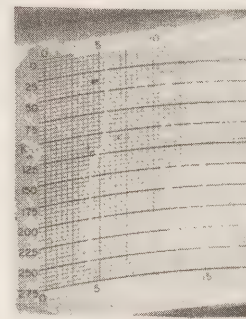 0 5 10
0
25
50
75
125
150
175
200
225
250
275 0 5 15